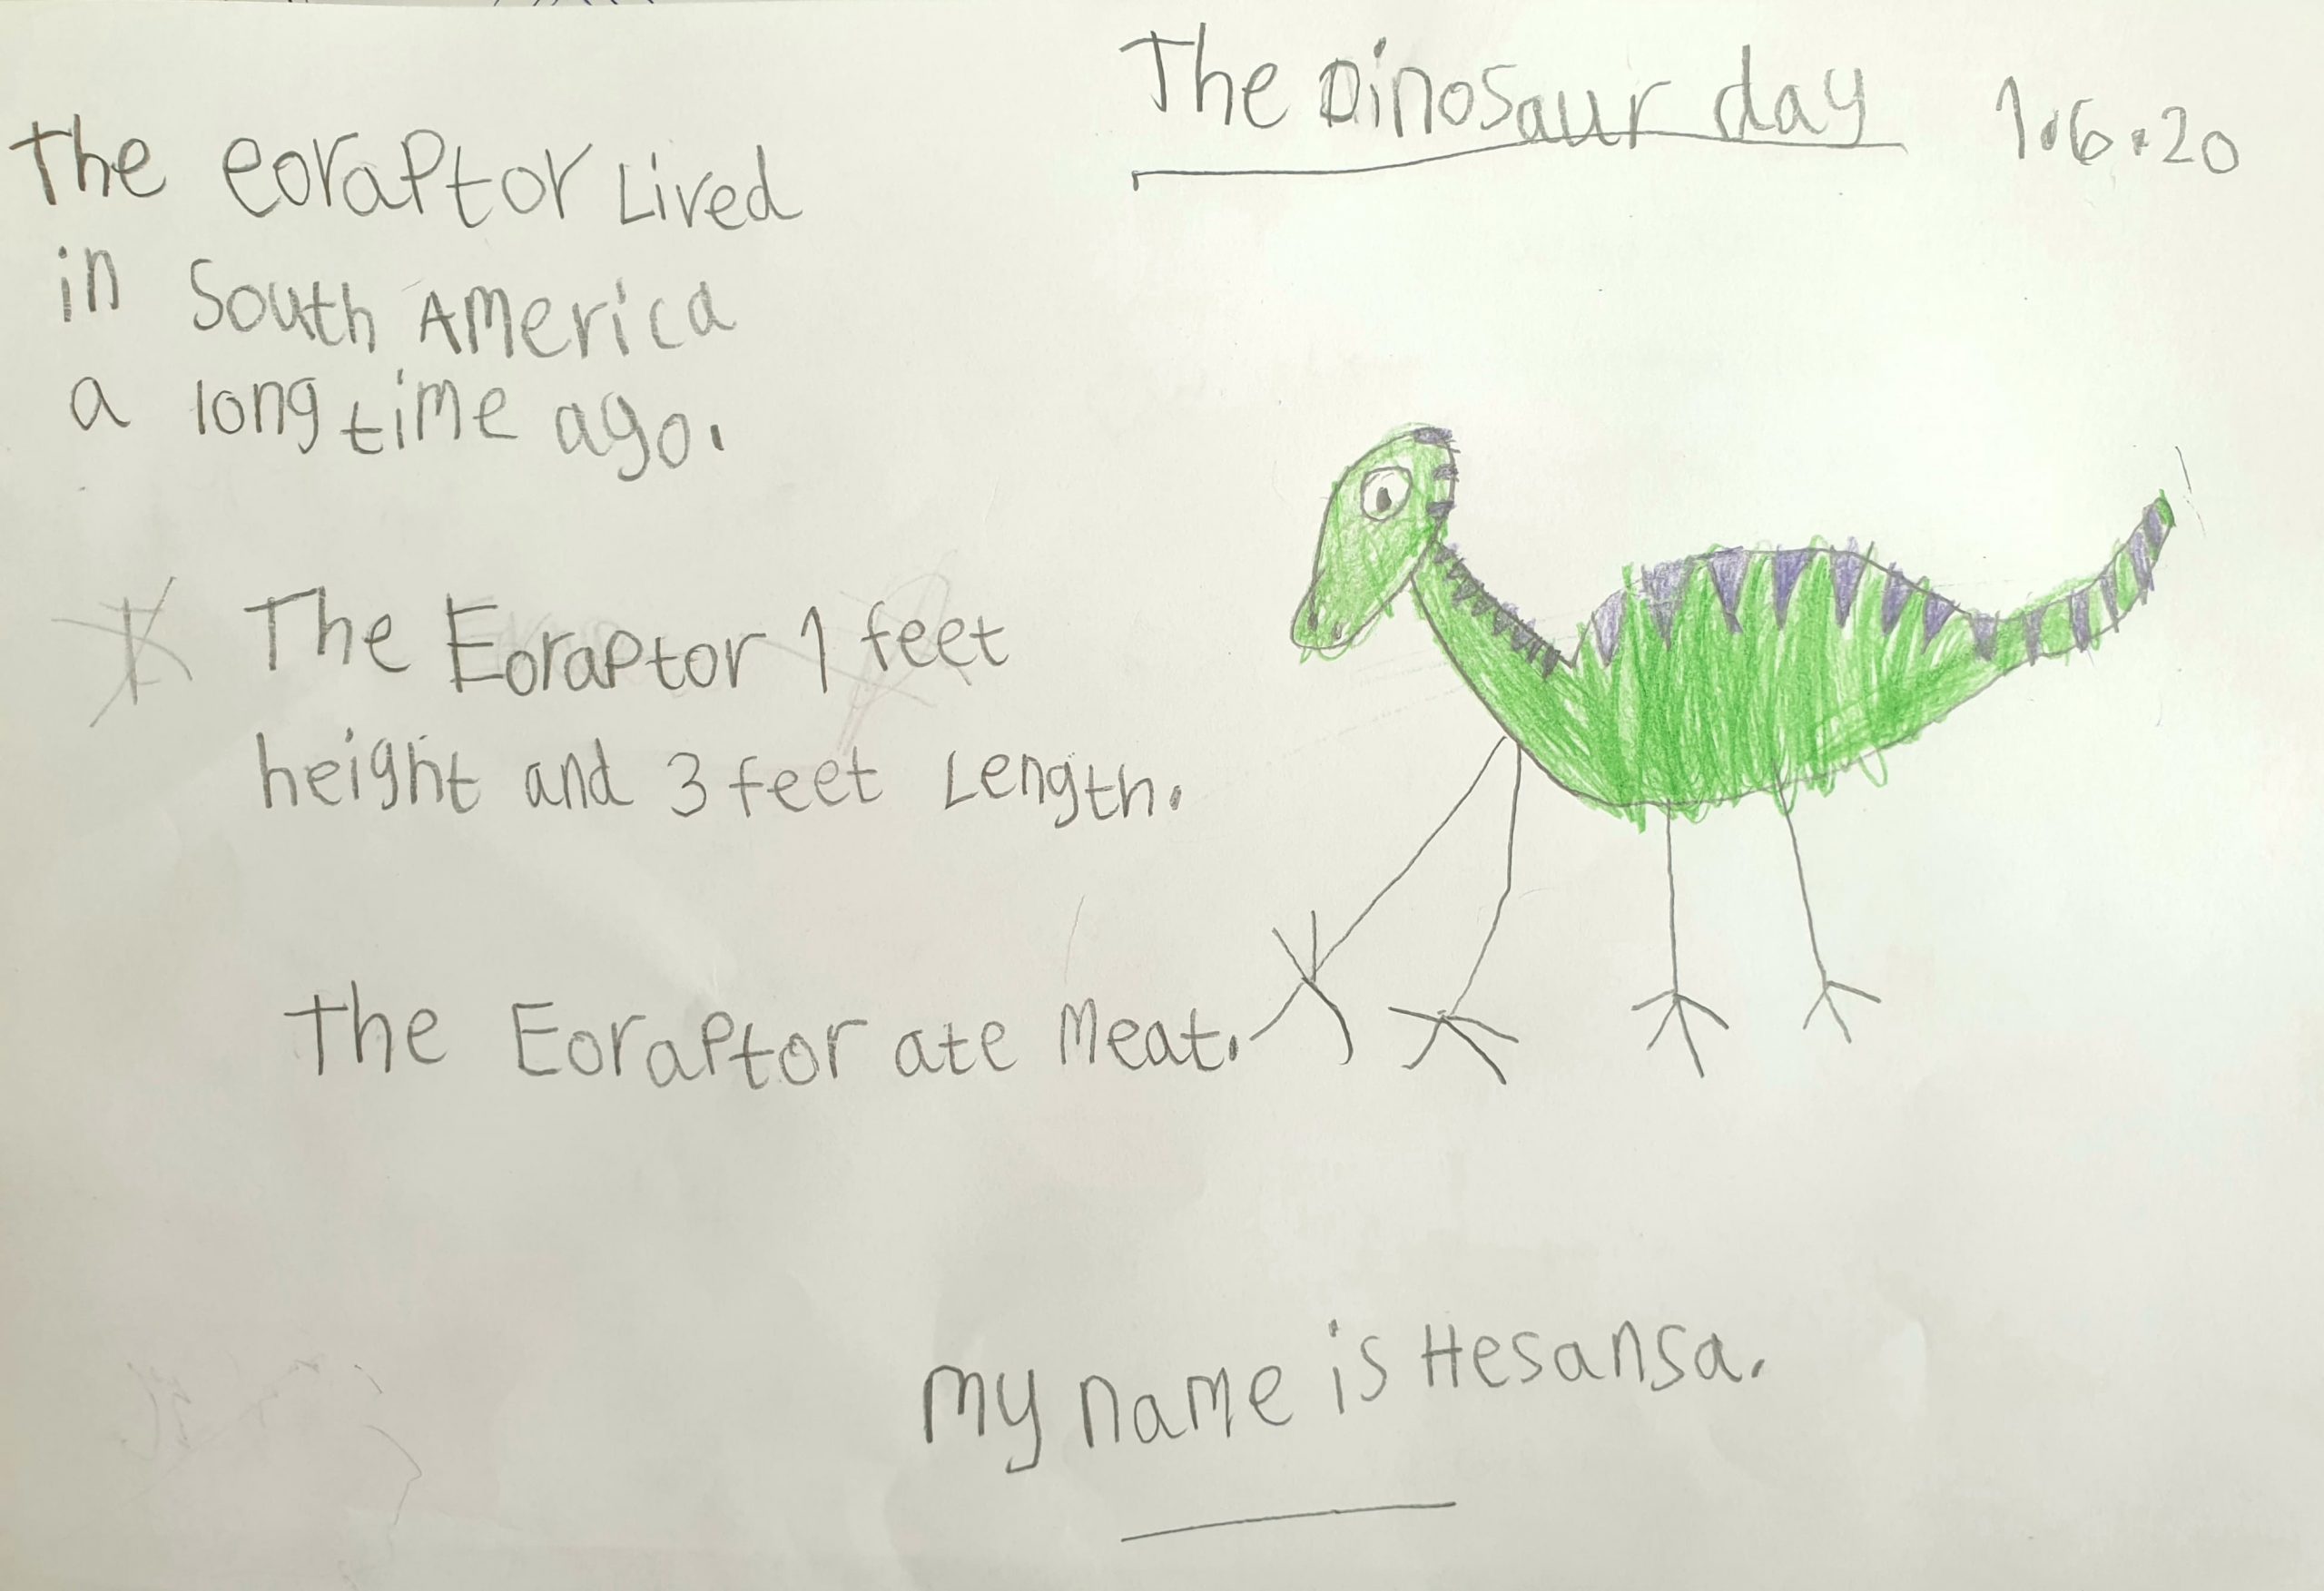 The Dinosaur day 1.6.20
The eoraptor Lived
in South America
a long time ago.
The Eoraptor 1 feet
height and 3 feet Length.
The Eoraptor ate meat.
My name is Hesansa.